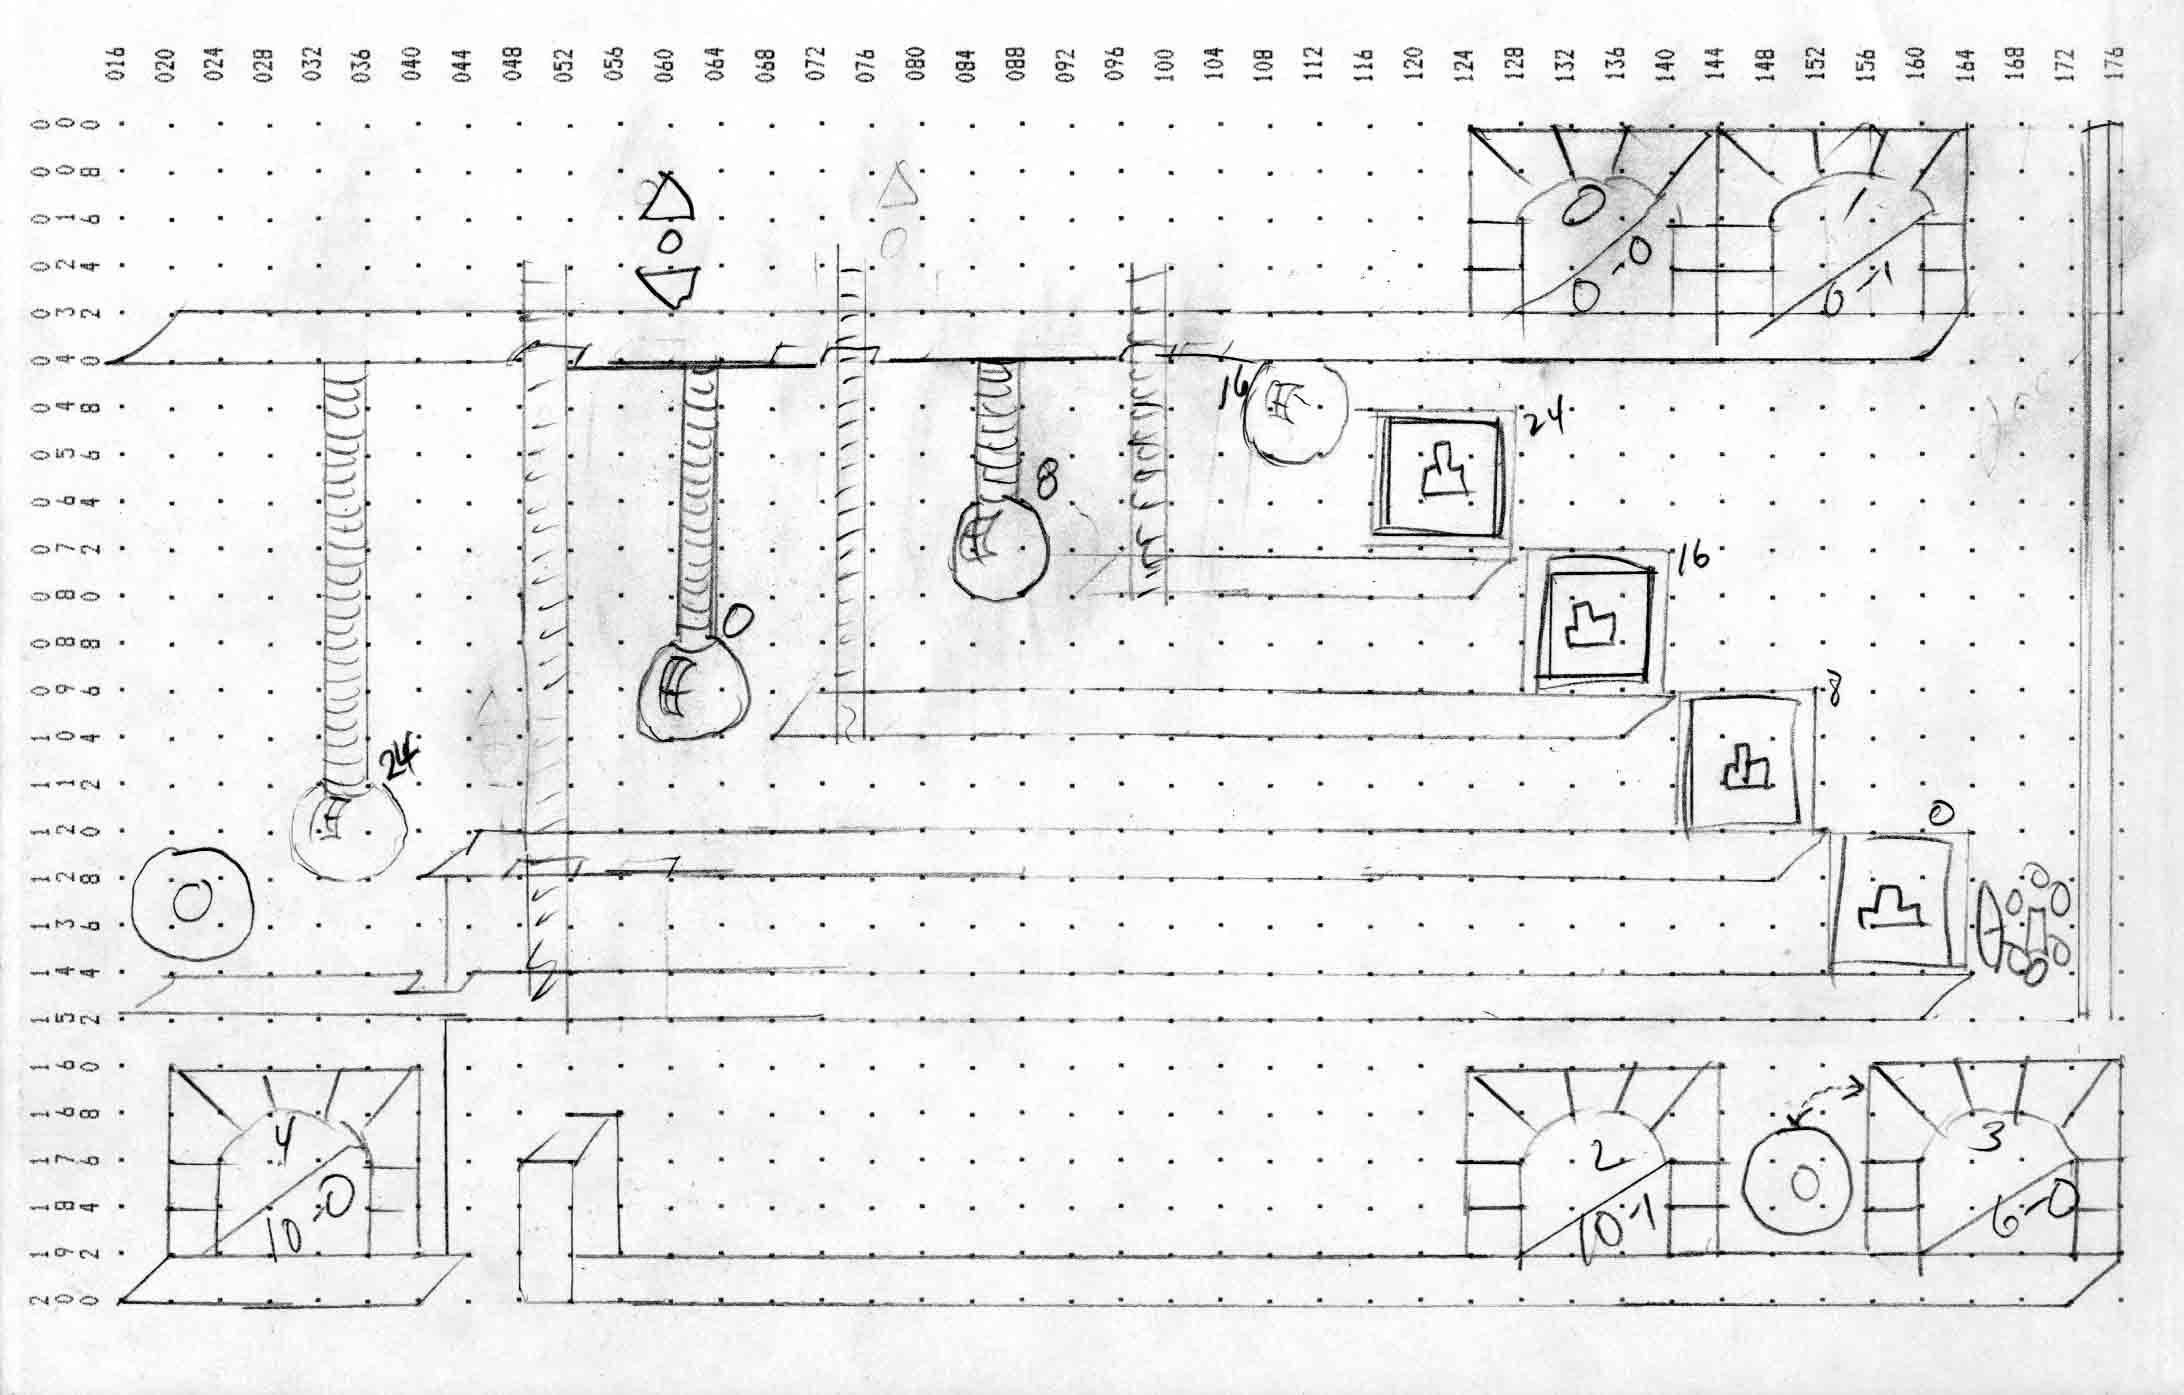 016 020 024 028 032 036 040 044 048 052 056 060 064 068 072 076 080 084 088 092 096 100 104 108 112 116 120 124 128 132 136 140 144 148 152 156 160 164 168 172 176
000
008
016
024
032
040
048
056
064
072
080
088
096
104
112
120
128
136
144
152
160
168
176
184
192
200
0
0-0
1
0-1
0
0
16
24
8
16
0
8
24
0
4
10-0
2
10-1
3
6-0